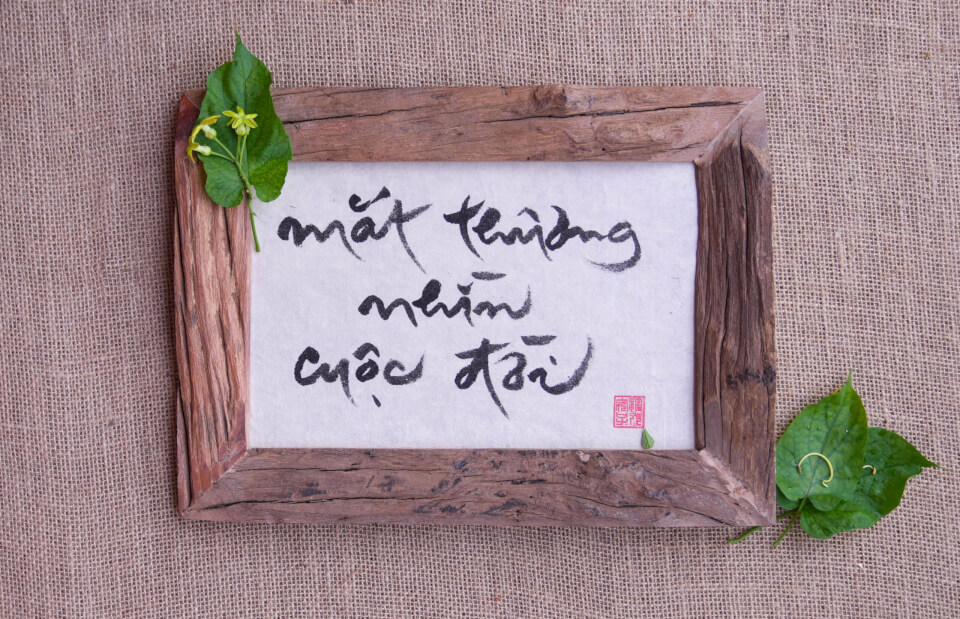 mắt thương
nhìn
cuộc đời